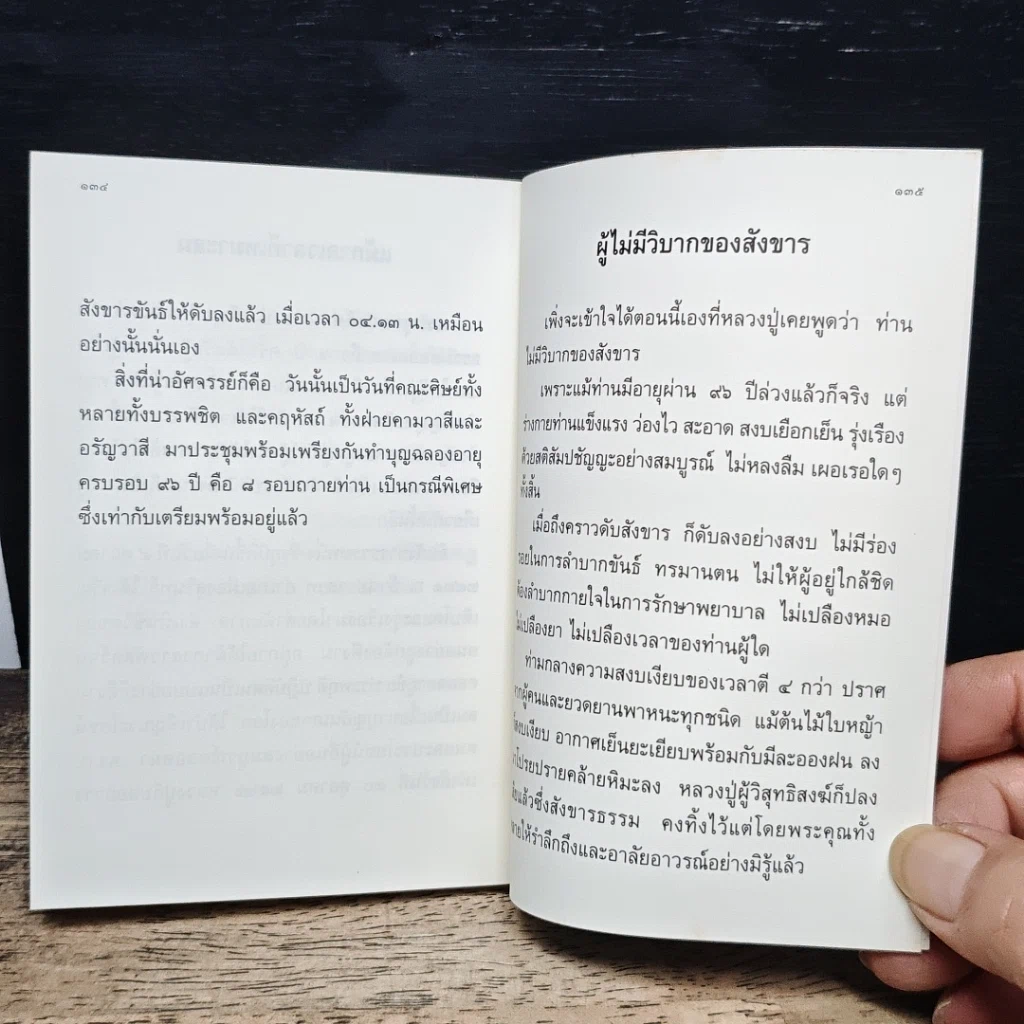 ๑๓๔
สังขารขันธ์ให้ดับลงแล้ว เมื่อเวลา ๐๔.๑๓ น. เหมือน
อย่างนั้นนั่นเอง
สิ่งที่น่าอัศจรรย์ก็คือ วันนั้นเป็นวันที่คณะศิษย์ทั้ง
หลายทั้งบรรพชิต และคฤหัสถ์ ทั้งฝ่ายคามวาสีและ
อรัญวาสี มาประชุมพร้อมเพรียงกันทำบุญฉลองอายุ
ครบรอบ ๙๖ ปี คือ ๘ รอบถวายท่าน เป็นกรณีพิเศษ
ซึ่งเท่ากับเตรียมพร้อมอยู่แล้ว
๑๓๕
ผู้ไม่มีวิบากของสังขาร
เพิ่งจะเข้าใจได้ตอนนี้เองที่หลวงปู่เคยพูดว่า ท่าน
ไม่มีวิบากของสังขาร
เพราะแม้ท่านมีอายุผ่าน ๙๖ ปีล่วงแล้วก็จริง แต่
ร่างกายท่านแข็งแรง ว่องไว สะอาด สงบเยือกเย็น รุ่งเรือง
ด้วยสติสัมปชัญญะอย่างสมบูรณ์ ไม่หลงลืม เผอเรอใดๆ
ทั้งสิ้น
เมื่อถึงคราวดับสังขาร ก็ดับลงอย่างสงบ ไม่มีร่อง
รอยในการลำบากขันธ์ ทรมานตน ไม่ให้ผู้อยู่ใกล้ชิด
ต้องลำบากกายใจในการรักษาพยาบาล ไม่เปลืองหมอ
ไม่เปลืองยา ไม่เปลืองเวลาของท่านผู้ใด
ท่ามกลางความสงบเงียบของเวลาตี ๔ กว่า ปราศ
จากผู้คนและยวดยานพาหนะทุกชนิด แม้ต้นไม้ใบหญ้า
สงบเงียบ อากาศเย็นยะเยียบพร้อมกับมีละอองฝน ลง
โปรยปรายคล้ายหิมะลง หลวงปู่ผู้วิสุทธิสงฆ์ก็ปลง
แล้วซึ่งสังขารธรรม คงทิ้งไว้แต่โดยพระคุณทั้ง
ให้รำลึกถึงและอาลัยอาวรณ์อย่างมิรู้แล้ว